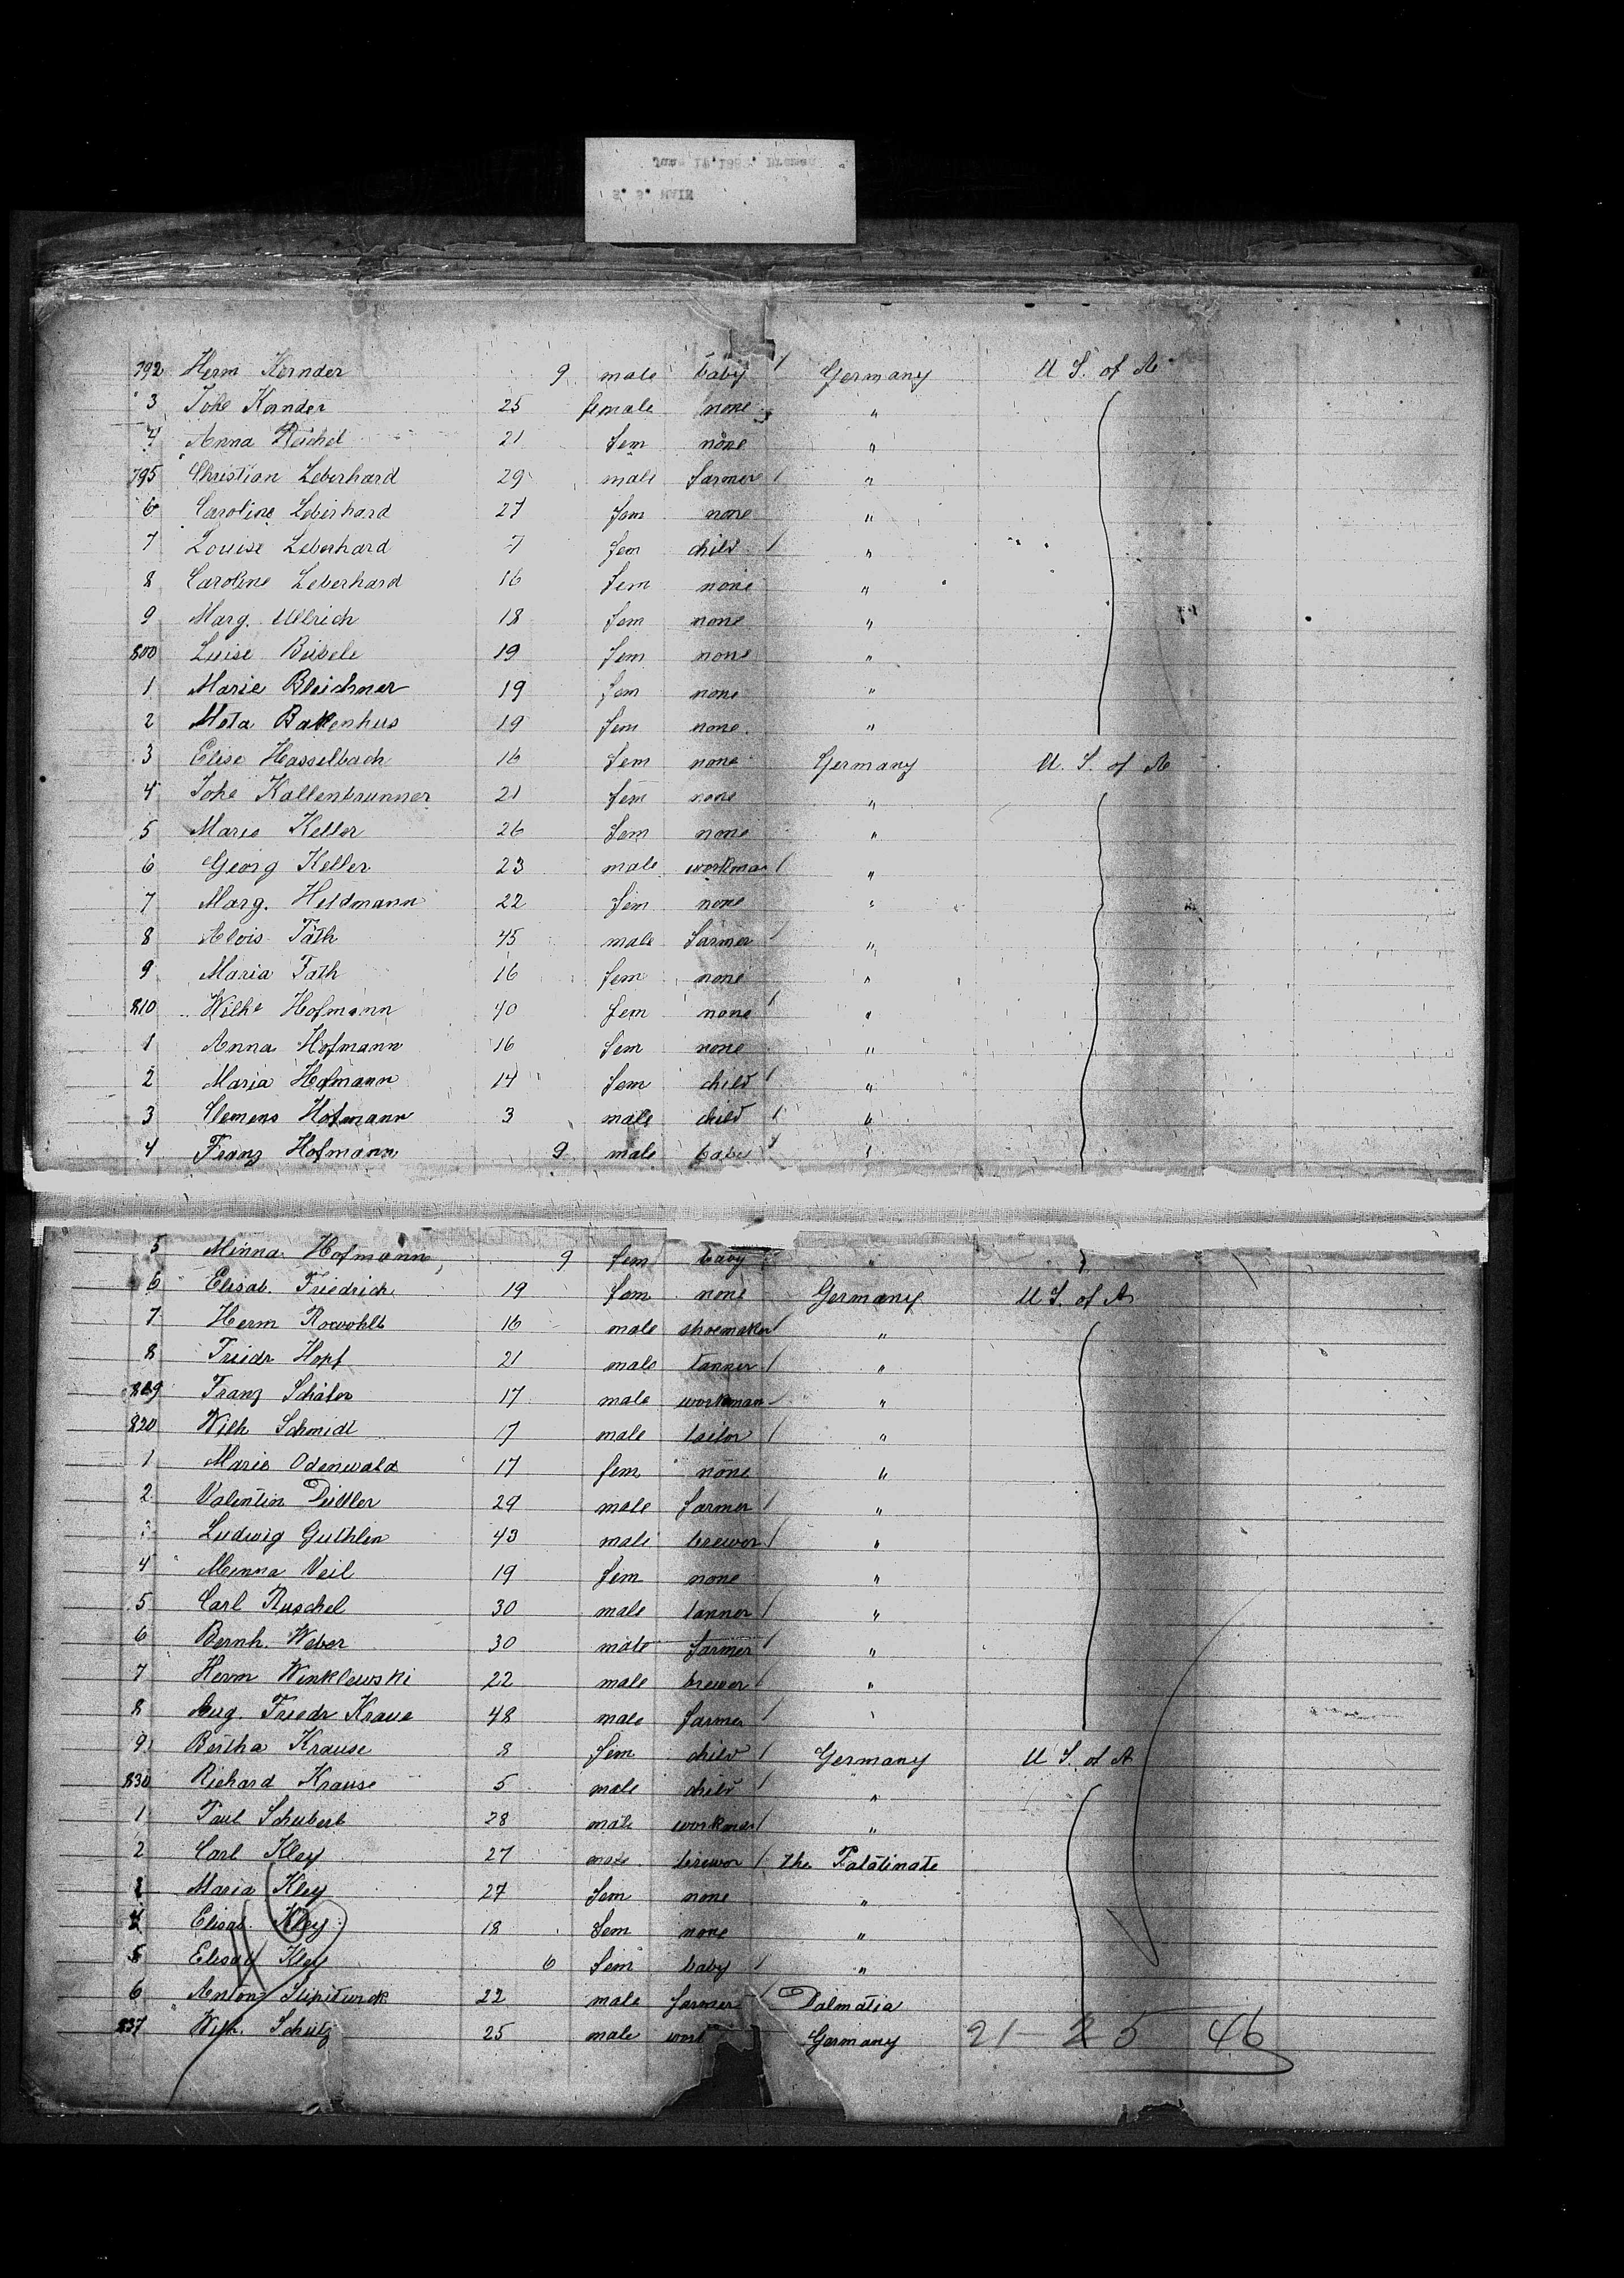 S. S. MAIN
792 Herm Kornder 9 male baby / Germany U. S. of A
3 Johe Kornder 25 female none "
4 Anna Reichel 21 fem none "
795 Christian Leberhard 29 male farmer / "
6 Caroline Leberhard 27 fem none "
7 Louise Leberhard 7 fem child / "
8 Caroline Leberhard 16 fem none "
9 Marg. Ullrich 18 fem none "
800 Luise 19 fem none "
1 Marie Bleichner 19 fem none "
2 Meta Bakenhus 19 fem none "
3 Elise Hasselbach 16 fem none Germany U. S. of A
4 Johe Kallenbrunner 21 fem none "
5 Marie Keller 26 fem none "
6 Georg Keller 23 male workman / "
7 Marg. Heldmann 22 fem none "
8 Alois Fäth 45 male farmer / "
9 Maria Fäth 16 fem none "
810 Wilhe Hofmann 40 fem none / "
1 Anna Hofmann 16 fem none "
2 Maria Hofmann 14 fem child / "
3 Clemens Hofmann 3 male child / "
4 Franz Hofmann 9 male baby "
5 Minna Hofmann 9 fem baby "
6 Elisab. Friedrich 19 fem none Germany U S. of A
7 Herm Rowohlt 16 male shoemaker / "
8 Friedr Hopf 21 male tanner / "
819 Franz Schäfer 17 male workman "
820 Wilh Schmidt 7 male tailor / "
1 Marie Odenwald 17 fem none "
2 Valentin 29 male farmer / "
Ludwig Guthlen 43 male brewer / "
4 Minna Veil 19 fem none "
5 Carl Ruschel 30 male tanner / "
6 Bernh. Weber 30 male farmer / "
7 Herm Winklewski 22 male brewer / "
8 Aug. Friedr Krause 48 male farmer / "
9 Bertha Krause 8 fem child / Germany U S. of A
830 Richard Krause 5 male child / "
1 Paul Schubert 28 male workman / "
2 Carl Kley 27 male brewer / the Palatinate
3 Maria Kley 27 fem none "
4 Elisab. Kley 18 fem none "
5 Elisab Kley 6 fem baby / "
6 Anton 22 male farmer / Dalmatia
837 Wilh. Schütz 25 male work Germany 21 25 46